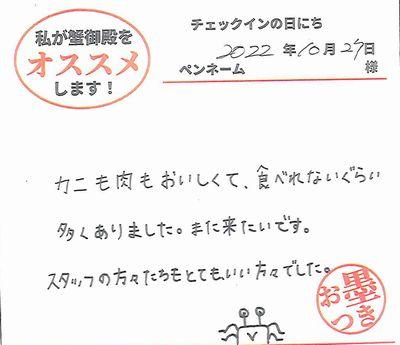 私が蟹御殿を
オススメ
します！
チェックインの日にち
2022 年 10 月 29 日
ペンネーム 様
カニも肉もおいしくて、食べれないぐらい
多くありました。また来たいです。
スタッフの方々たちもとても、いい方々でした。
お墨つき